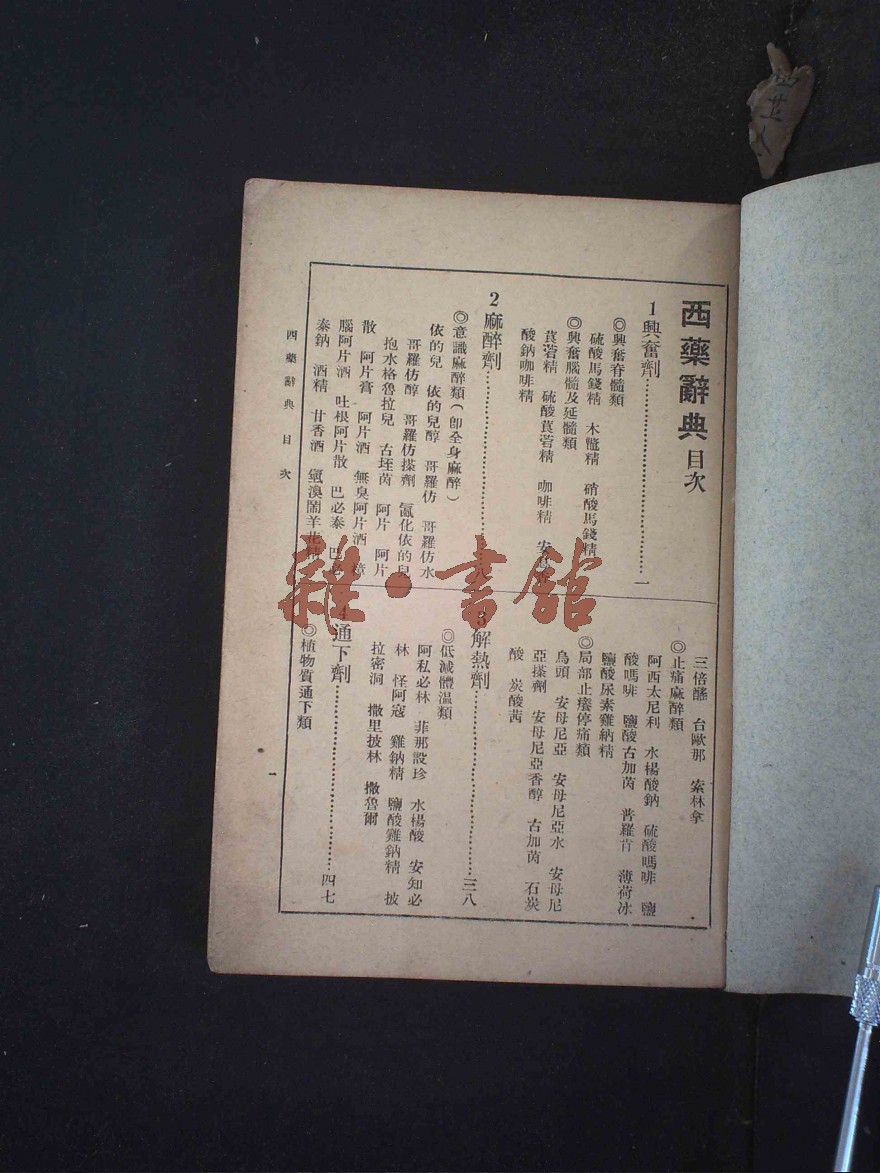 西藥辭典 目次
1 興奮劑……………………一
◎興奮脊髓類
硫酸馬錢精 木鼈精 硝酸馬錢精
◎興奮腦髓及延髓類
莨菪精 硫酸莨菪精 咖啡精
酸鈉咖啡精
2 麻醉劑……………………八
◎意識麻醉類(即全身麻醉)
依的兒 依的兒醇 哥羅仿 哥羅仿水
哥羅仿醇 哥羅仿搽劑 氯化依的兒
抱水格魯拉兒 古垤茵 阿片 阿片
散 阿片膏 阿片酒 無臭阿片酒 樟
腦阿片酒 吐根阿片散 巴必泰 巴必
泰鈉 酒精 甘香酒 氫溴鬧羊花精
三倍醚 台歐那 索林拿
◎止痛麻醉類
阿西太尼利 水楊酸鈉 硫酸嗎啡 鹽
酸嗎啡 鹽酸古加茵 普羅肯 薄荷冰
鹽酸尿素雞納精
◎局部止癢停痛類
烏頭 安母尼亞 安母尼亞水 安母尼
亞搽劑 安母尼亞香醇 古加茵 石炭
酸 炭酸茜
3 解熱劑……………………三八
◎低減體溫類
阿私必林 菲那設珍 水楊酸 安知必
林 怪阿寇 雞鈉精 鹽酸雞鈉精 披
拉密洞 撒里披林 撒魯爾
4 通下劑……………………四七
◎植物質通下類
西藥辭典 目次
一
雜·書館